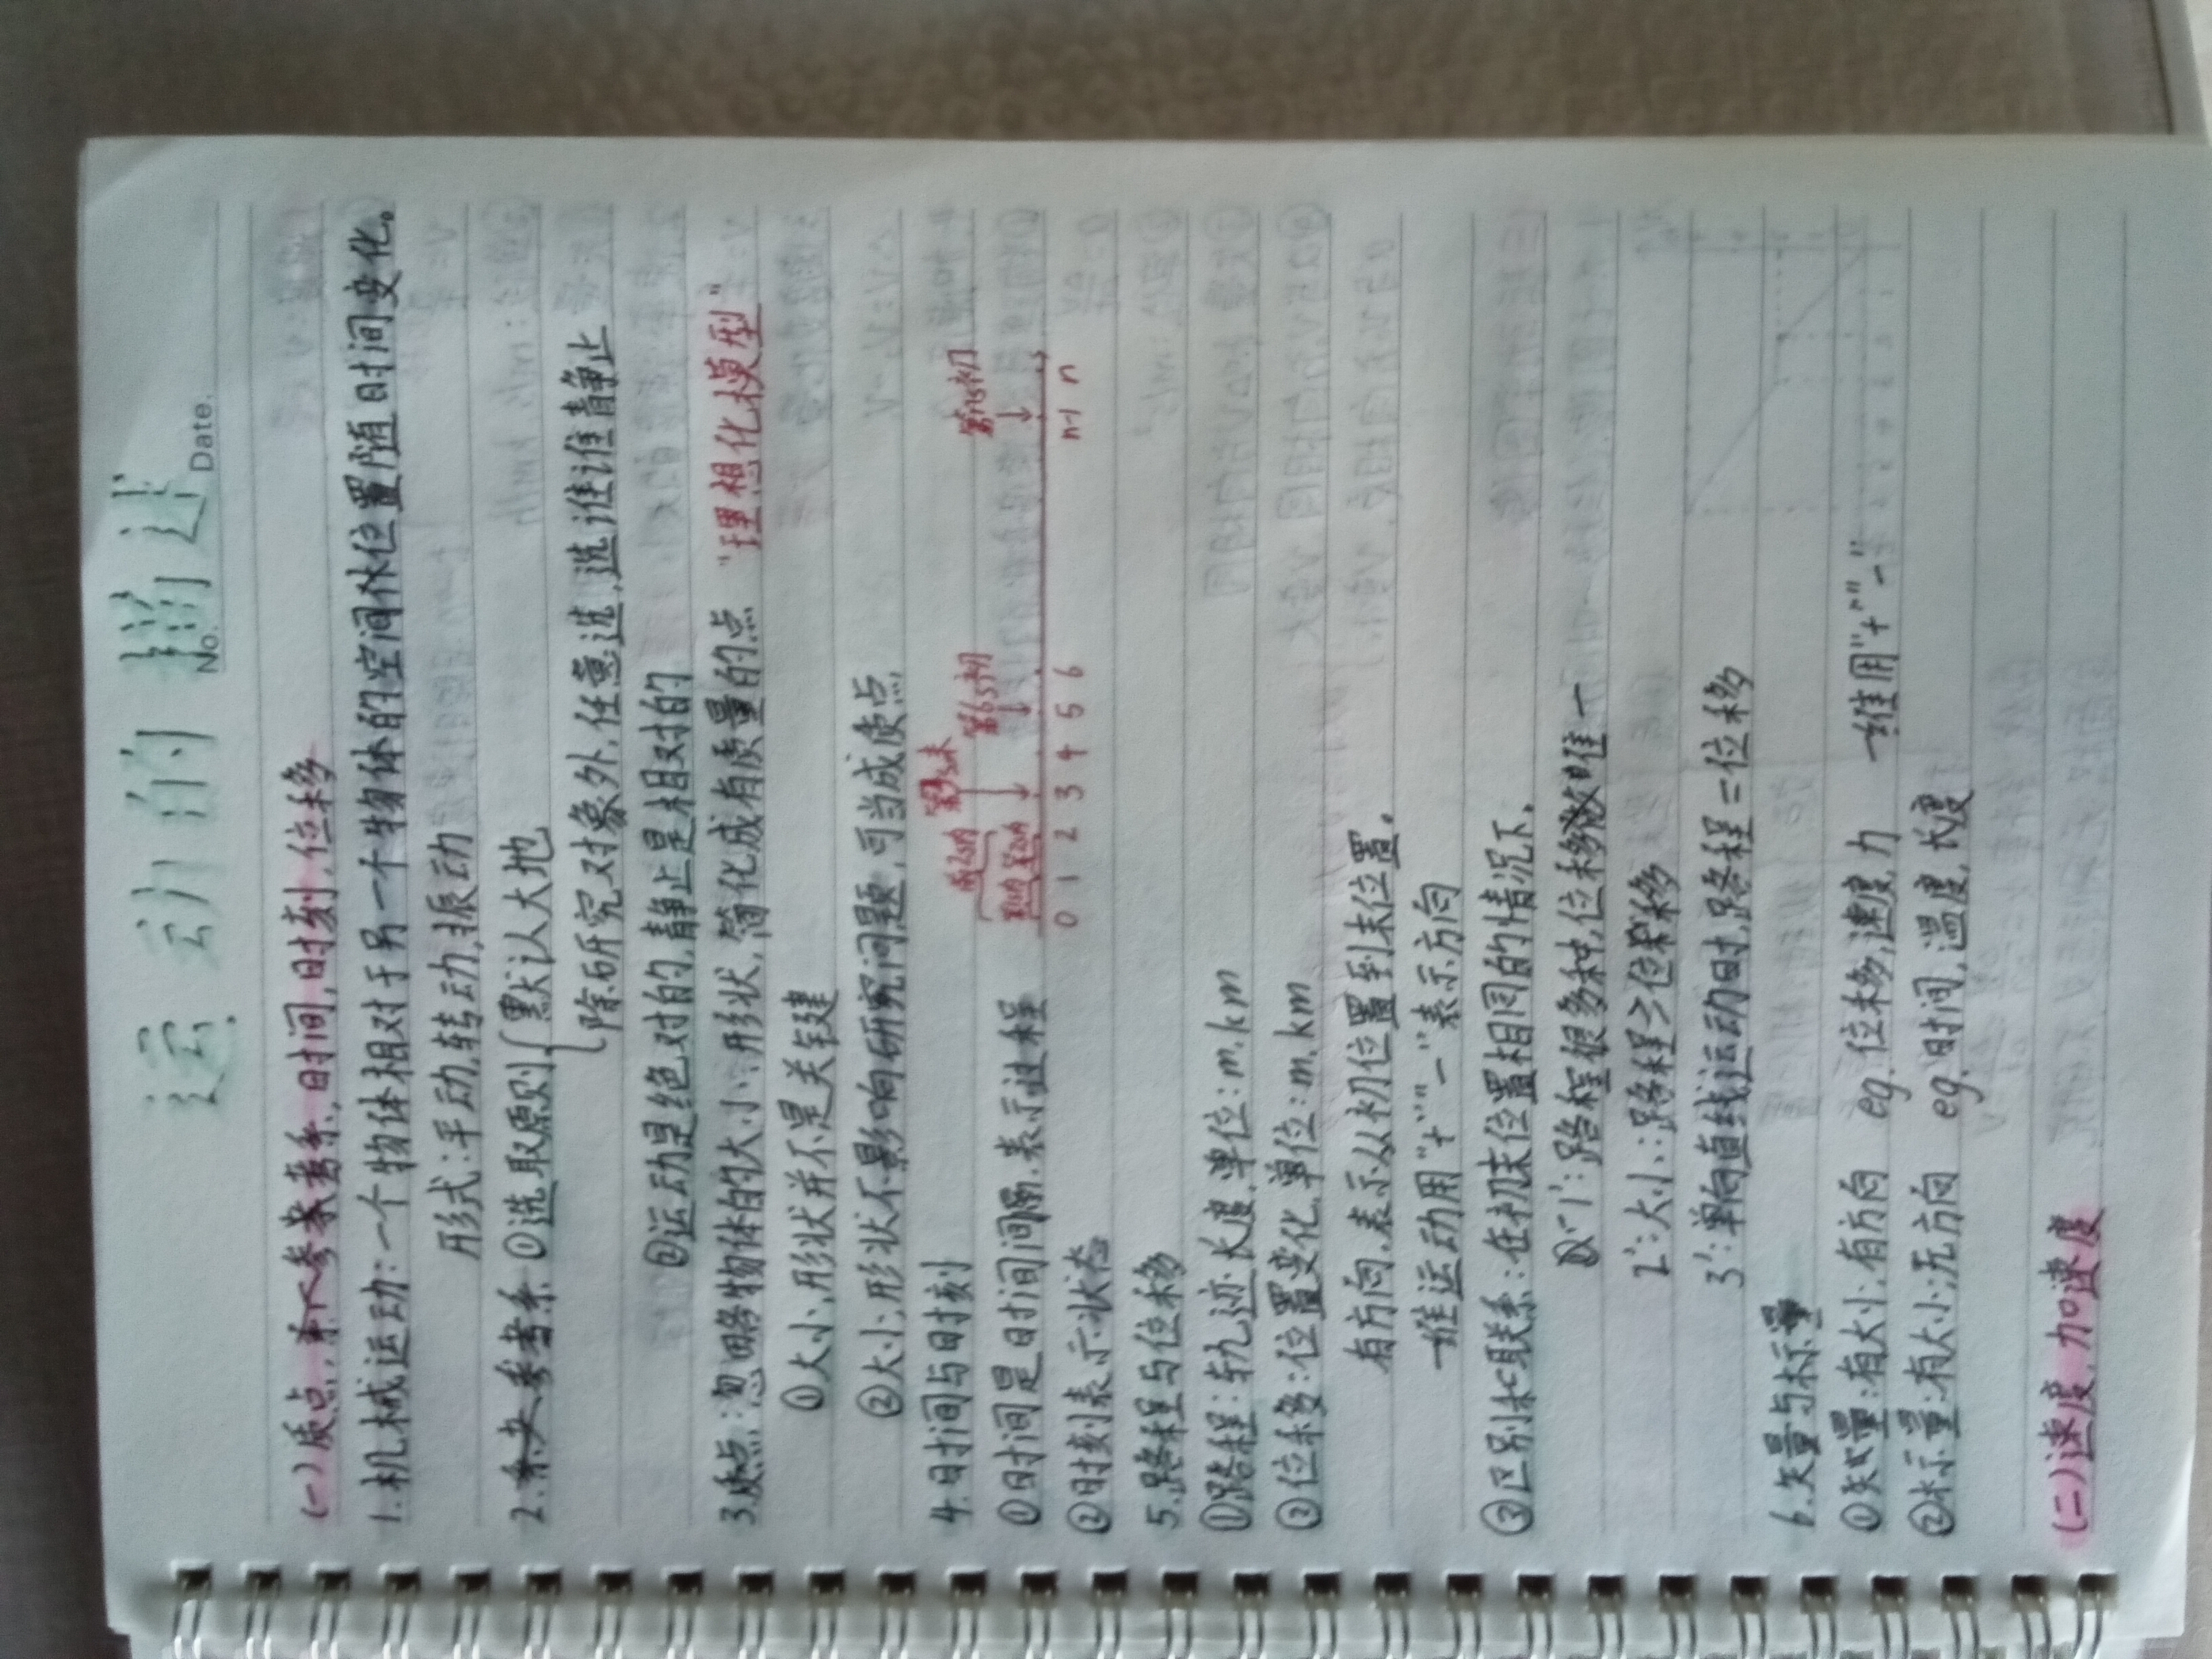 运动的描述
No.
Date.
(一)质点,参考系,时间,时刻,位移
1.机械运动:一个物体相对于另一个物体的空间位置随时间变化。
形式:平动,转动,振动
2.参考系 ①选取原则{默认大地
除研究对象外,任意选,选谁谁静止
②运动是绝对的,静止是相对的
3.质点:忽略物体的大小,形状,简化成有质量的点 “理想化模型”
①大小,形状并不是关键
②大小,形状不影响研究问题,可当成质点
4.时间与时刻
前2s内 第3s末 第6s初 第ns初
①时间是时间间隔.表示过程 第1s内 第2s内
②时刻表示状态 0 1 2 3 4 5 6 n-1 n
5.路程与位移
①路程:轨迹长度,单位:m,km
②位移:位置变化,单位:m,km
有方向,表示从初位置到末位置。
一维运动用“+”“-”表示方向
③区别和联系:在初末位置相同的情况下,
1':路程很多种,位移唯一
2':大小:路程≥位移
3':单向直线运动时,路程=位移
6.矢量与标量
①矢量:有大小,有方向 eg.位移,速度,力 一维用“+”“-”
②标量:有大小,无方向 eg.时间,温度,长度
(二)速度,加速度